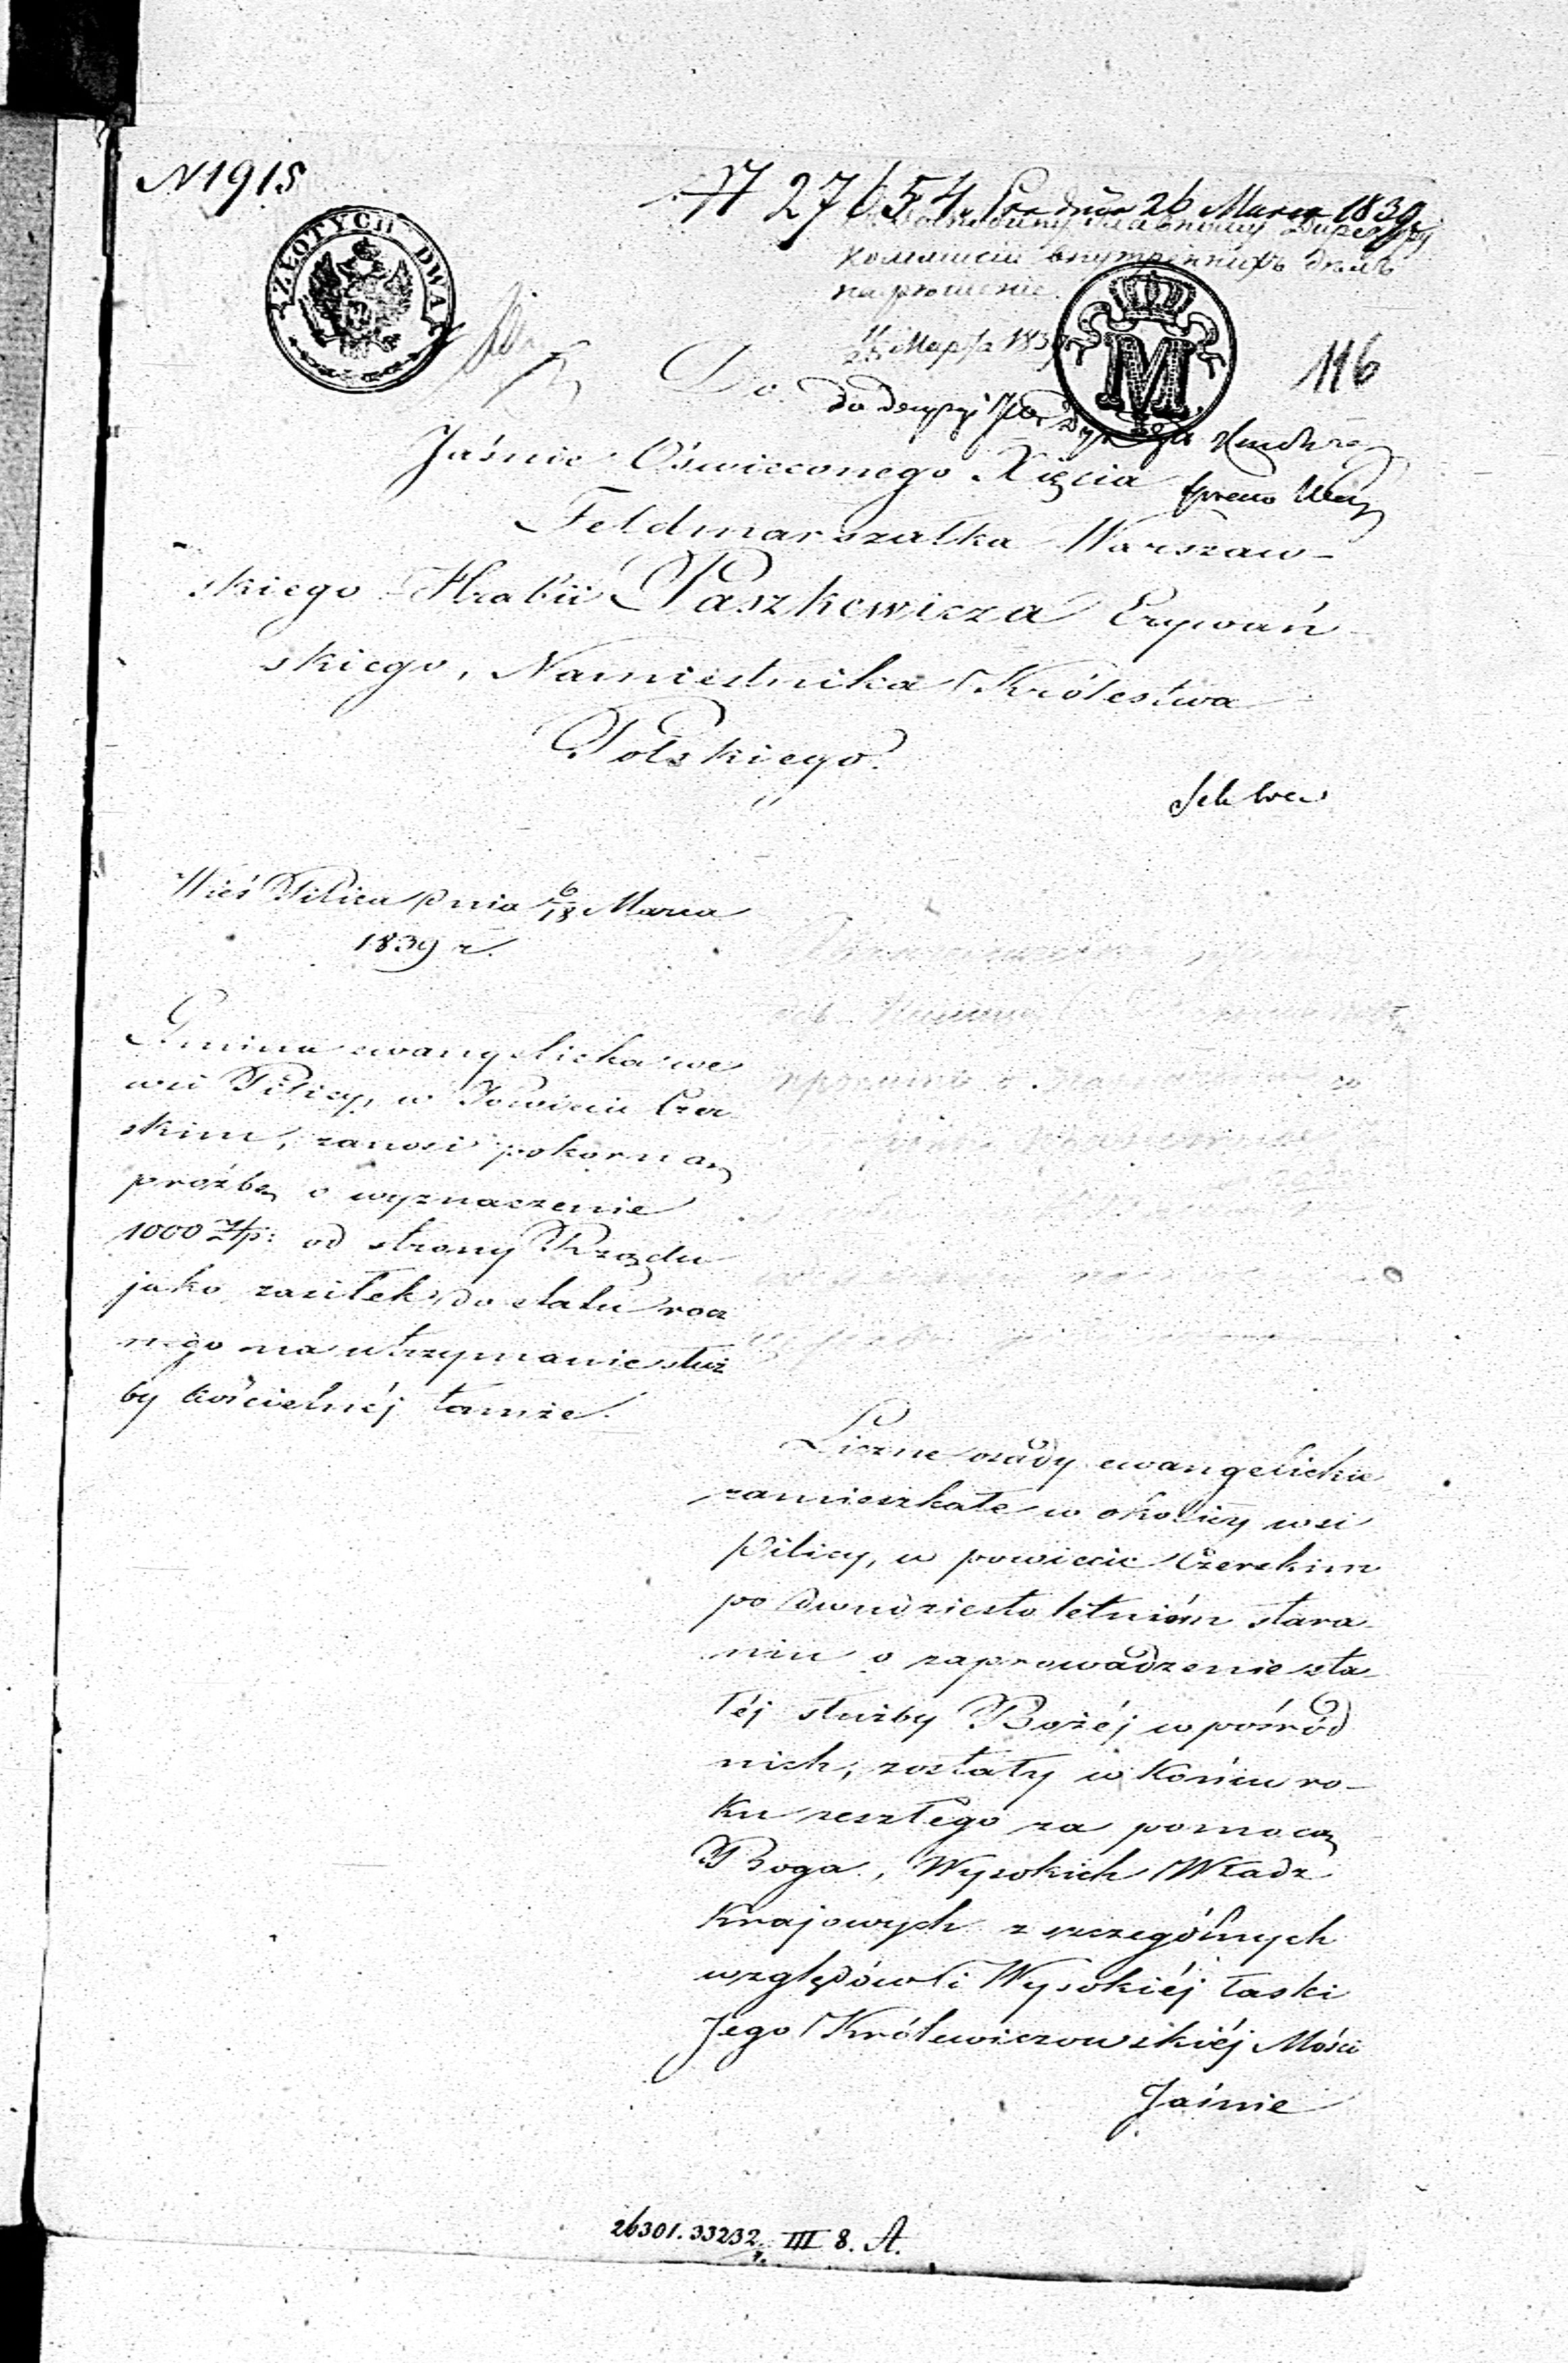 N 1918
27654 26 Marca 1839
ZŁOTYCH DWA
2
Коммисіи внутреннихъ дѣлъ
на прошеніе.
Марта 1839
M
116
Do
do decyzyi
Jaśnie Oświeconego Xięcia
Feldmarszałka Warszaw-
skiego Hrabii Paszkewicza Erywań
skiego, Namiestnika Królestwa
Polskiego.
Wieś Pilica dnia 6/18 Marca
1839 r.
Gmina ewangelicka we
wsi Pilicy, w Powiecie Czer
skim, zanosi pokorną
prożbę o wyznaczenie
1000 Złp: od strony Rządu
jako zasiłek do etatu rocz
nego na utrzymanie służ
by kościelnéj tamże.
Liczne osady ewangelickie
zamieszkałe w okolicy wsi
Pilicy, w powiecie Czerskim
po dwudziesto letniém stara-
niu o zaprowadzenie sta-
łéj służby Bożéj w pośród
nich, zostały w końcu ro-
ku zeszłego za pomocą
Boga, Wysokich Władz
Krajowych z szczególnych
względów i Wysokiéj łaski
Jego Królewiczowskiéj Mości
Jaśnie
26301.33232. III 8. A.